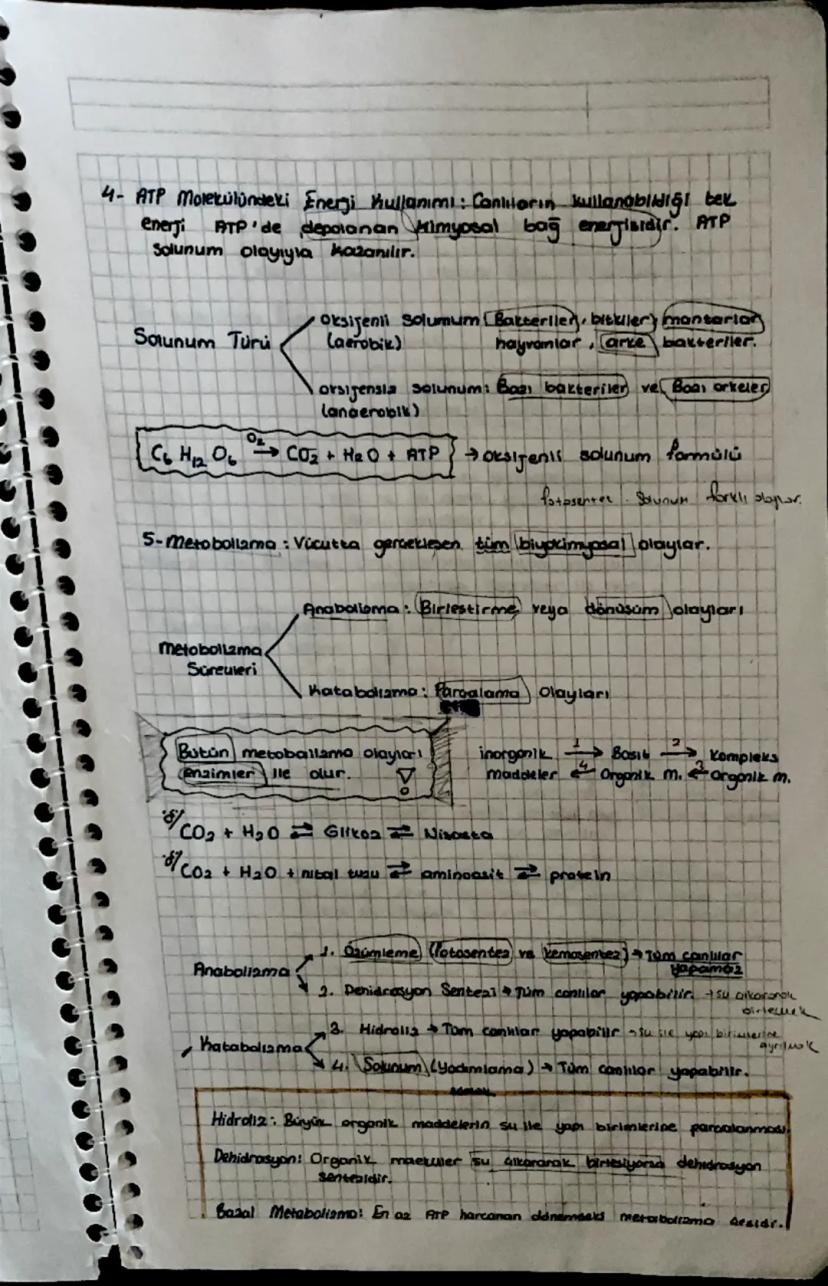 4- ATP Molekülündeki Enerji Kullanımı: Canlıların kullanabildiği tek
enerji ATP'de depolanan kimyasal bağ enerjisidir. ATP
solunum olayıyla kazanılır.
Solunum Türü
oksijenli solunum (Bakteriler, bitkiler, mantarlar
(aerobik) hayvanlar, arke bakteriler.
oksijensiz solunum: Bazı bakteriler ve Bazı arkeler
(anaerobik)
C6 H12 O6 →O2 CO2 + H2O + ATP → oksijenli solunum formülü
fotosentez solunum farklı olaylar.
5-Metobolizma: Vücutta gerçekleşen tüm biyokimyasal olaylar.
Metobolizma
Süreçleri
Anabolizma: Birleştirme veya dönüşüm olayları
Katabolizma: Parçalama olayları
Bütün metabolizma olayları
enzimler ile olur. !
inorganik 1→ Basit 2→ Kompleks
maddeler ←4 Organik m. ←3 Organik m.
ö/ CO2 + H2O ⇄ Glikoz ⇄ Nişasta
ö/ CO2 + H2O + nital tuzu ⇄ aminoasit ⇄ protein
Anabolizma
1. Özümleme (fotosentez ve kemosentez) → Tüm canlılar
yapamaz
2. Dehidrasyon Sentezi → Tüm canlılar yapabilir. → su çıkararak
birleşmek
Katabolizma
3. Hidroliz → Tüm canlılar yapabilir → su ile yapı birimlerine
ayrılmak
4. Solunum (Yadımlama) → Tüm canlılar yapabilir.
Hidroliz: Büyük organik maddelerin su ile yapı birimlerine parçalanması.
Dehidrasyon: Organik su çıkararak birleşiyorsa dehidrasyon
sentezidir.
Bazal Metabolizma: En az ATP harcanan dönemdeki metabolizma